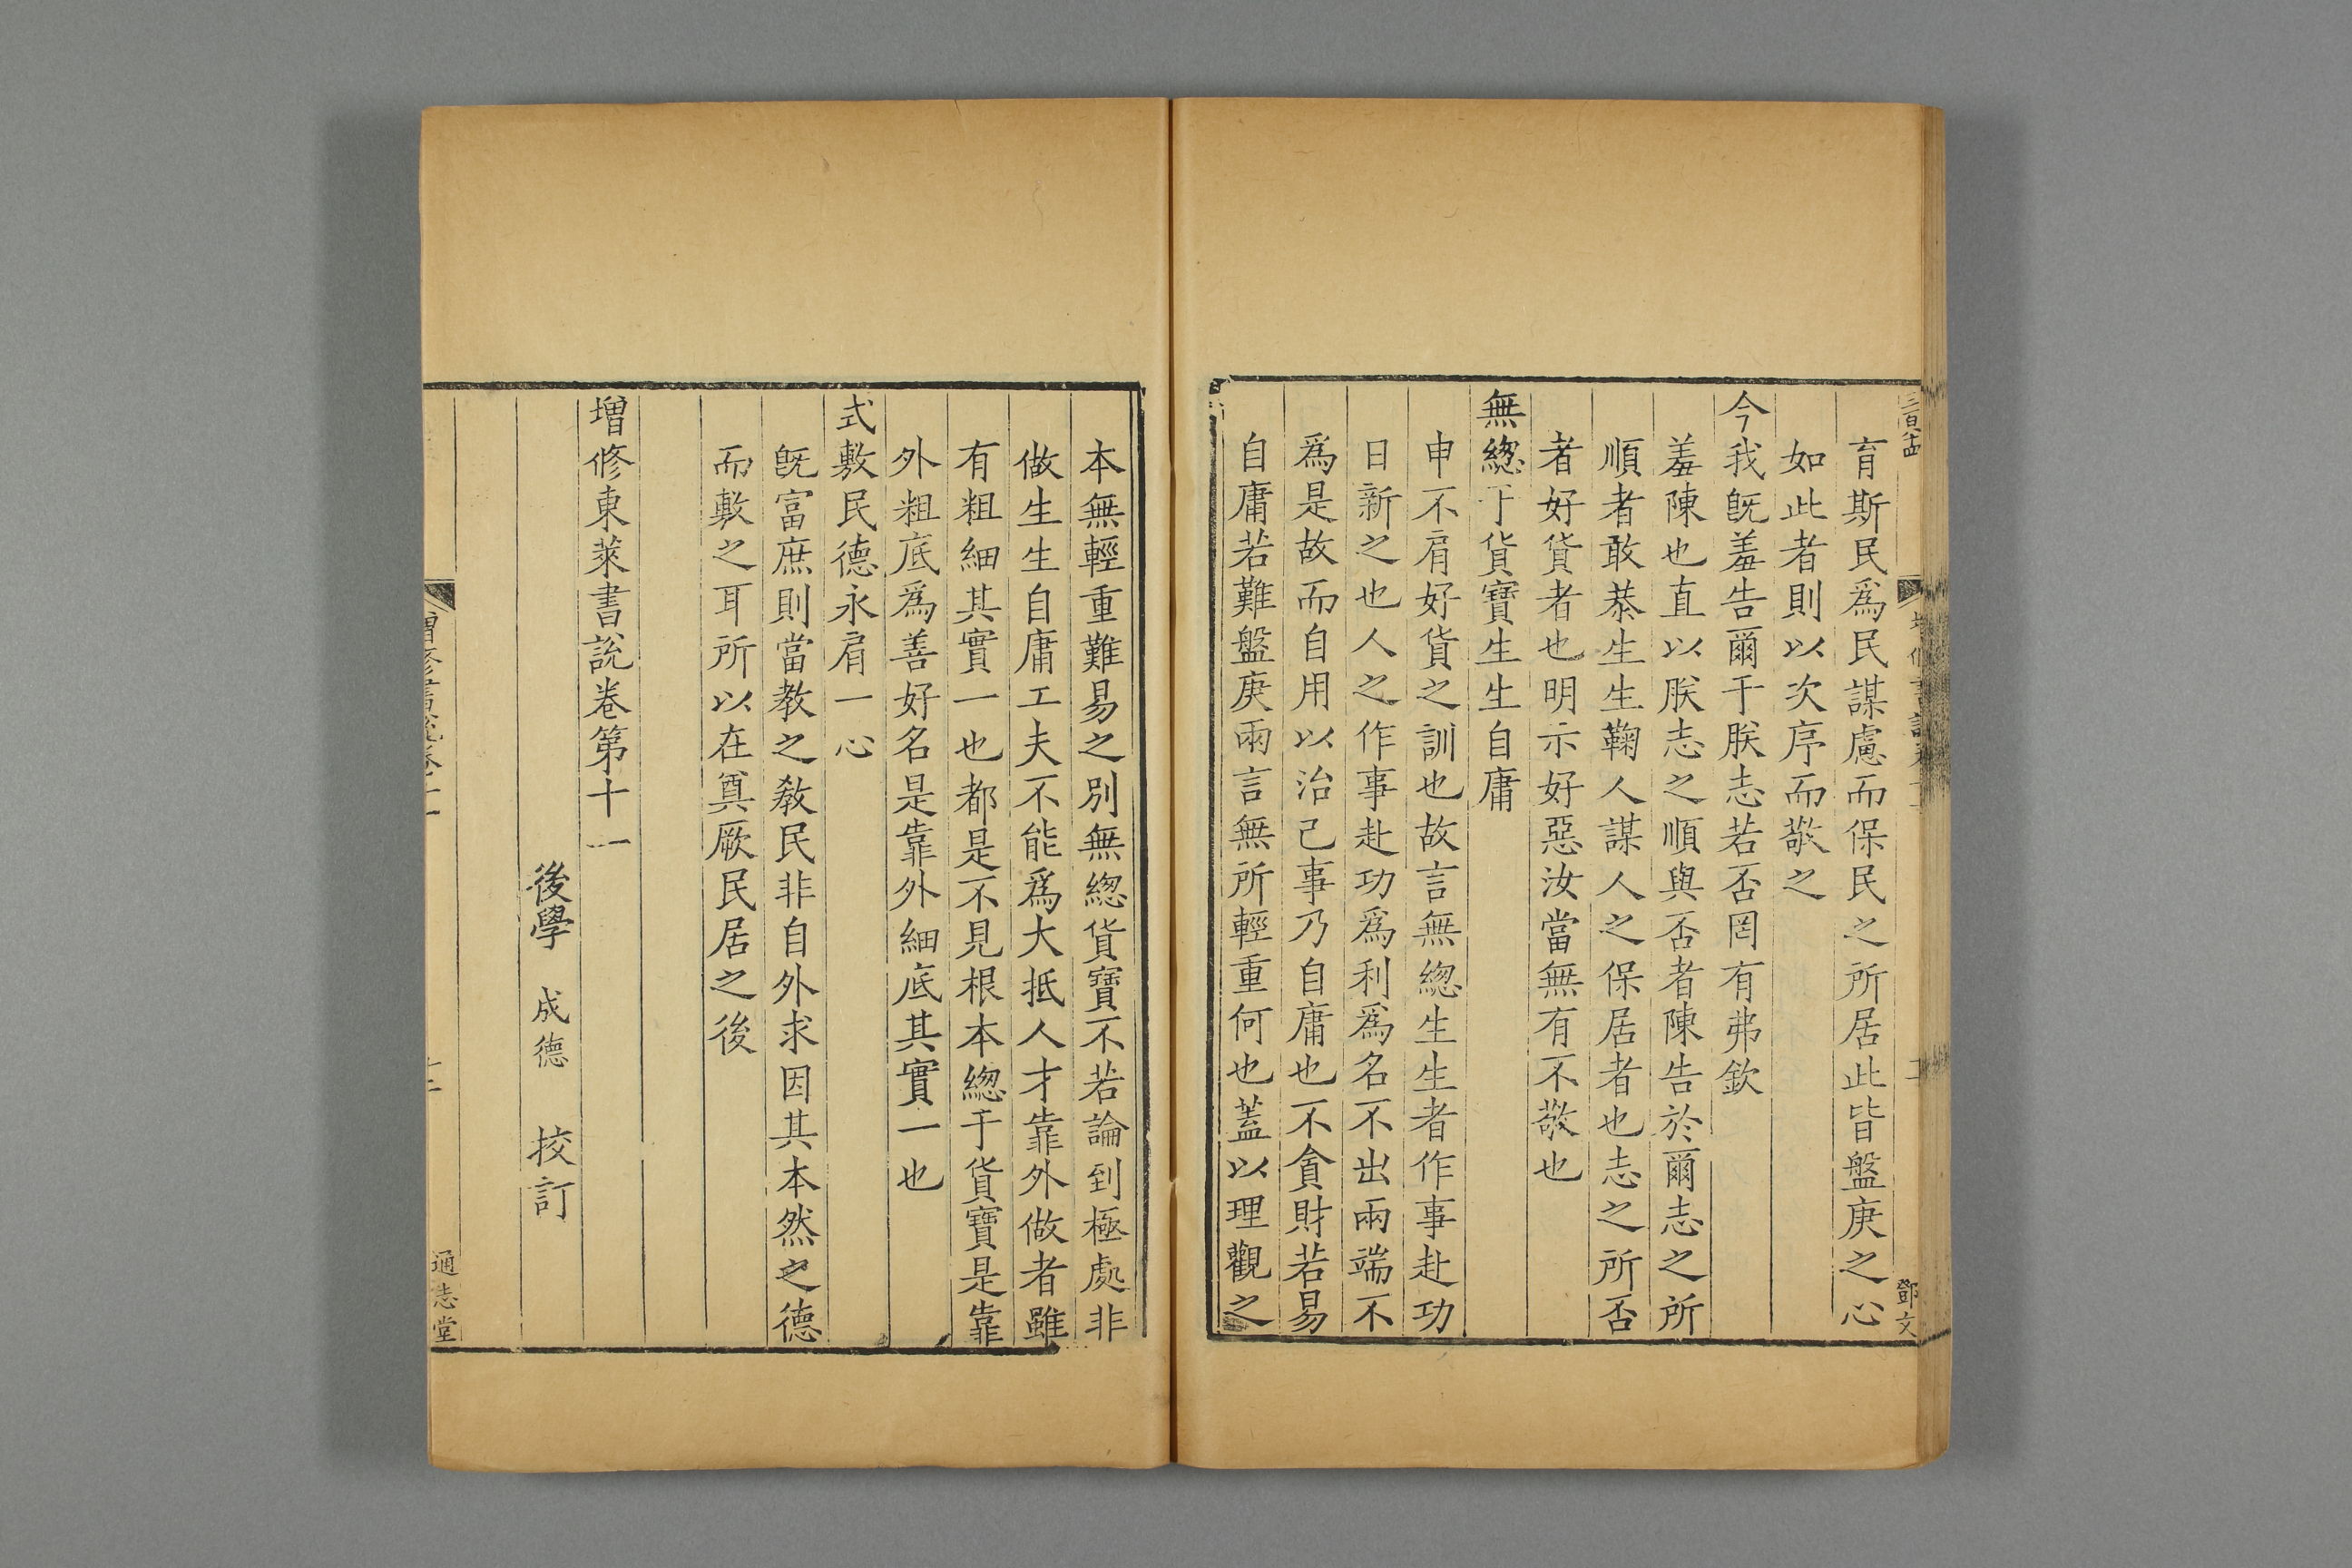 育斯民爲民謀慮而保民之所居此皆盤庚之心
如此者則以次序而敬之
今我旣羞告爾于朕志若否罔有弗欽
羞陳也直以朕志之順與否者陳告於爾志之所
順者敢恭生生鞠人謀人之保居者也志之所否
者好貨者也明示好惡汝當無有不敬也
無緫于貨寶生生自庸
申不肩好貨之訓也故言無緫生生者作事赴功
日新之也人之作事赴功爲利爲名不出兩端不
爲是故而自用以治己事乃自庸也不貪財若易
自庸若難盤庚兩言無所輕重何也蓋以理觀之
鄧文
本無輕重難易之別無緫貨寶不若論到極處非
做生生自庸工夫不能爲大抵人才靠外做者雖
有粗細其實一也都是不見根本緫于貨寶是靠
外粗底爲善好名是靠外細底其實一也
式敷民德永肩一心
旣富庶則當教之敎民非自外求因其本然之德
而敷之耳所以在奠厥民居之後
增修東萊書說卷第十一
後學 成德 挍訂
通志堂